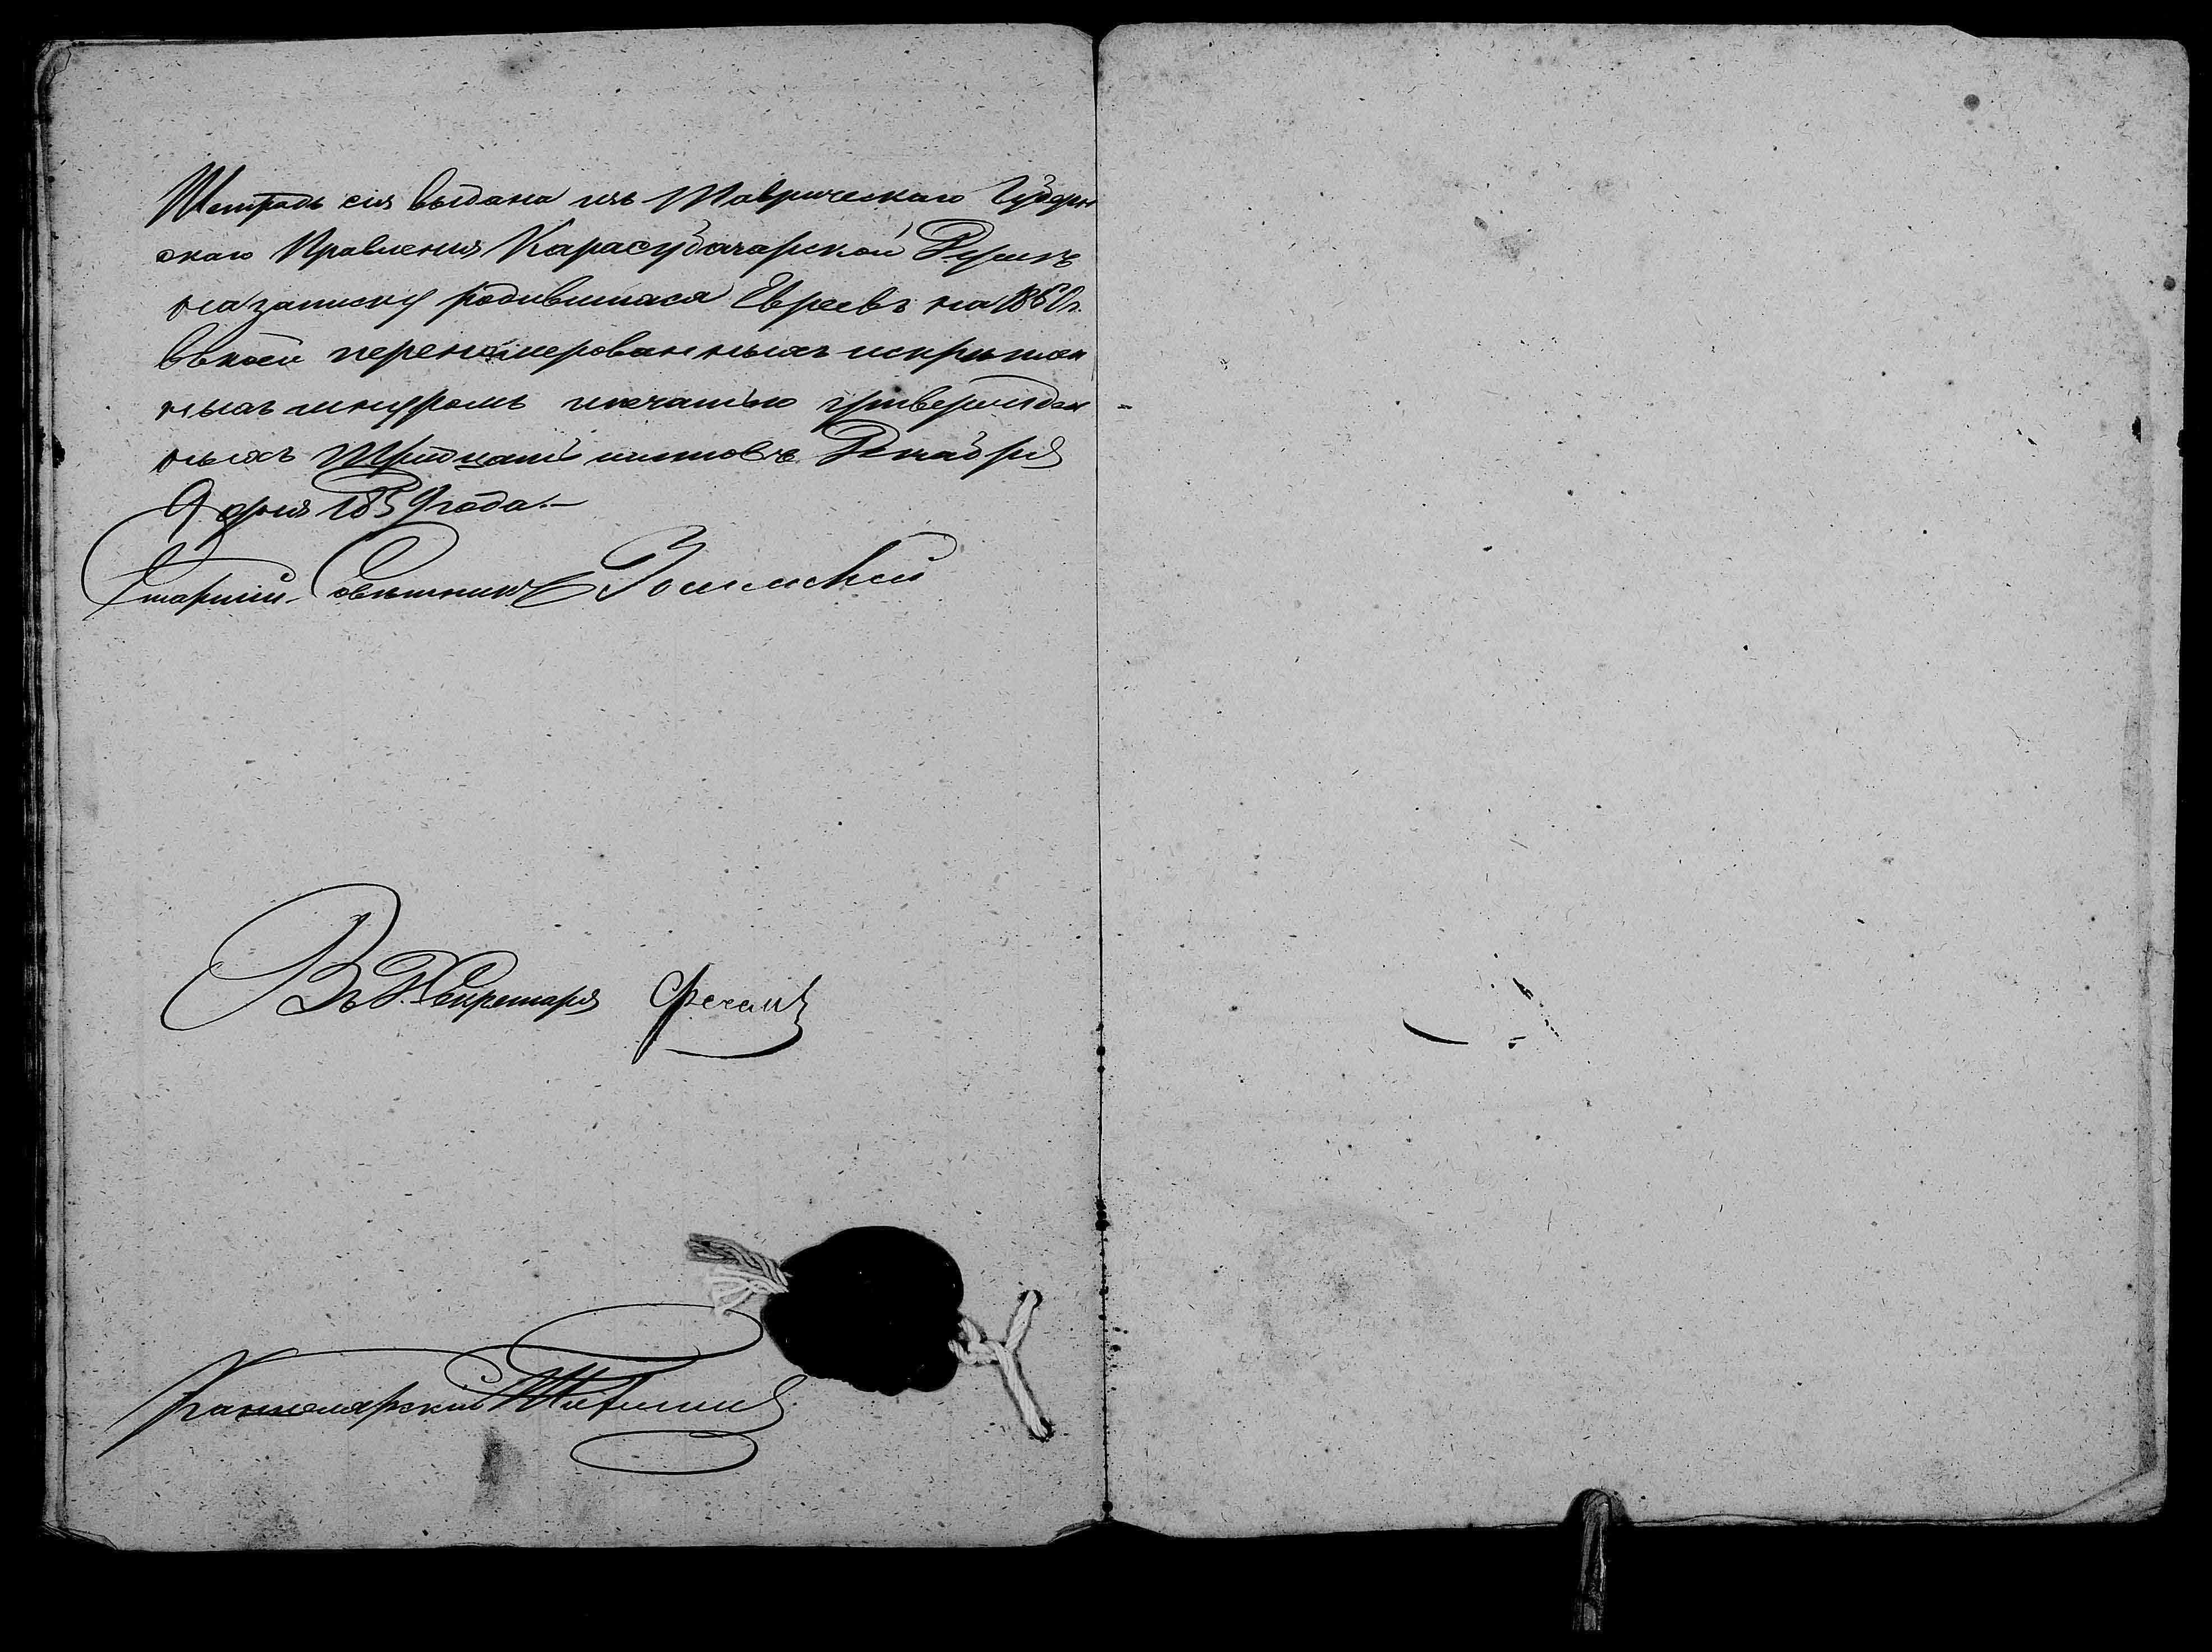 Тетрадь сія выдана изъ Таврическаго Губерн
скаго Правленія Карасубазарской Думѣ
на записку родившихся Евреевъ на 1860 г.
въ коей перенумерованныхъ искрѣплен
ныхъ шнуромъ ипечатью утвержден
ныхъ Тридцать листовъ. Декабря
9 дня 1859 года.—
Старшій Совѣтникъ
Въ д. Секретаря
Канцелярскій